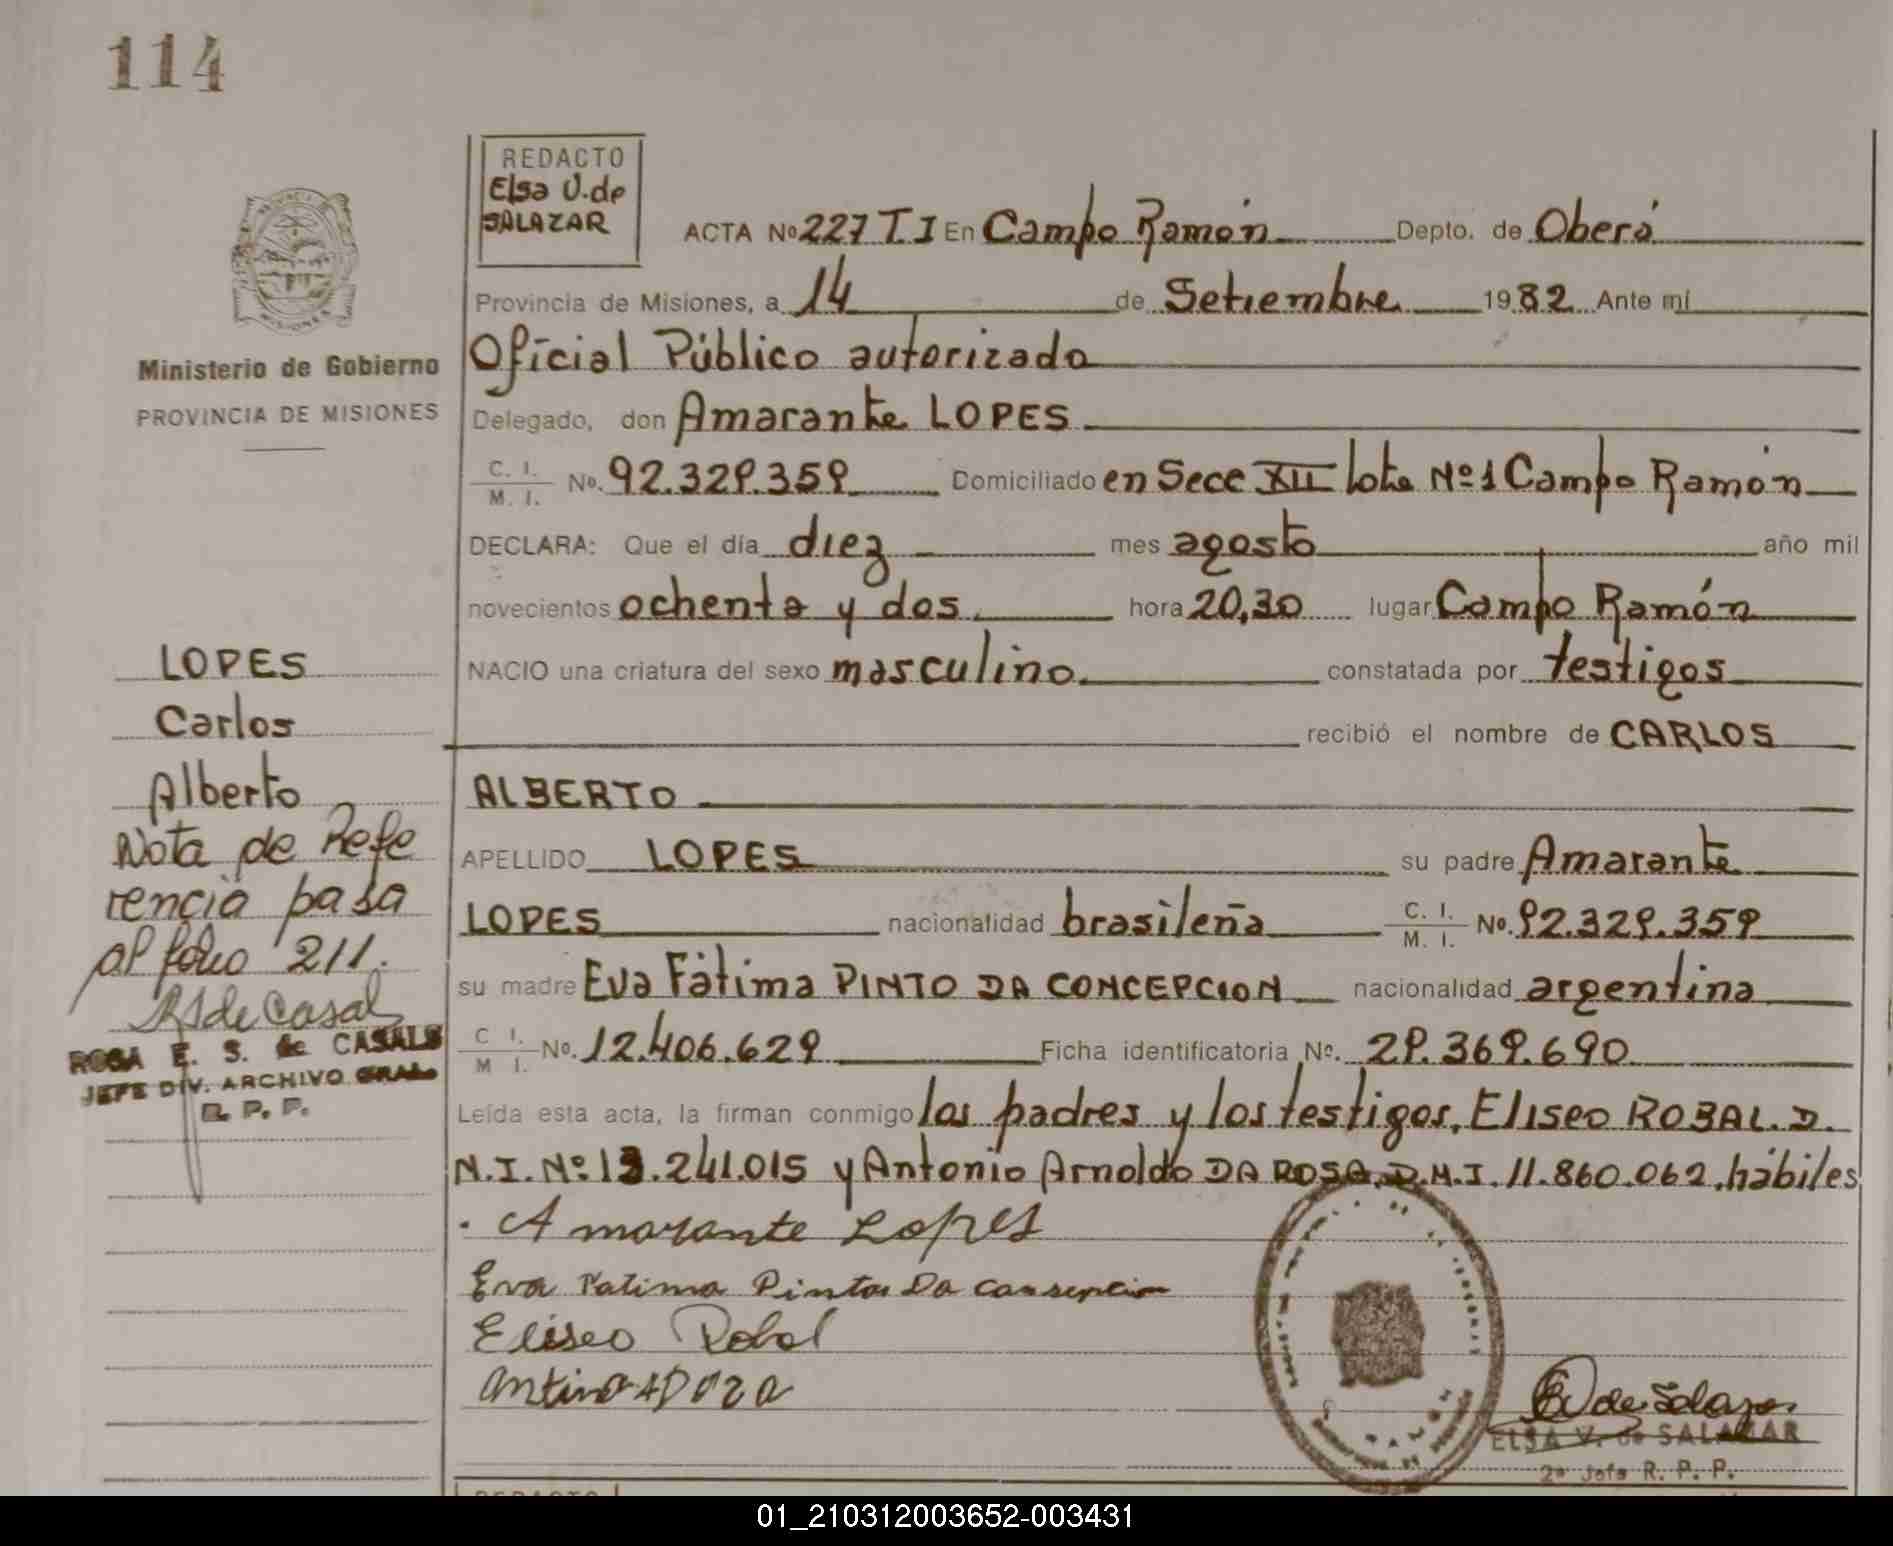 114
REDACTO
Elsa V. de
SALAZAR
ACTA Nº 227 T. I En Campo Ramón Depto. de Oberá
Provincia de Misiones, a 14 de Setiembre 1982 Ante mí
Oficial Público autorizado
Delegado, don Amarante LOPES
C. I. / M. I. Nº. 92.329.359 Domiciliado en Secc XII lote Nº 1 Campo Ramón
DECLARA: Que el día diez mes agosto año mil
novecientos ochenta y dos hora 20,30 lugar Campo Ramón
NACIO una criatura del sexo masculino constatada por testigos
recibió el nombre de CARLOS
ALBERTO
APELLIDO LOPES su padre Amarante
LOPES nacionalidad brasileña C. I. / M. I. Nº. 92.329.359
su madre Eva Fátima PINTO DA CONCEPCION nacionalidad argentina
C I. / M I. Nº. 12.406.629 Ficha identificatoria Nº. 29.369.690
Leída esta acta, la firman conmigo los padres y los testigos, Eliseo ROBAL. D.
N. I. Nº 13.241.015 y Antonio Arnoldo DA ROSA. D.N.I. 11.860.062, hábiles
Amarante Lopes
Eva Fatima Pinto Da Consepcion
Eliseo Robal
ELSA V. de SALAZAR
2ª Jefa R. P. P.
Ministerio de Gobierno
PROVINCIA DE MISIONES
LOPES
Carlos
Alberto
Nota de Refe
rencia pasa
al folio 211.
RSde Casal
ROSA E. S. de CASALS
JEFE DIV. ARCHIVO GRAL.
R. P. P.
REDACTO
01_210312003652-003431